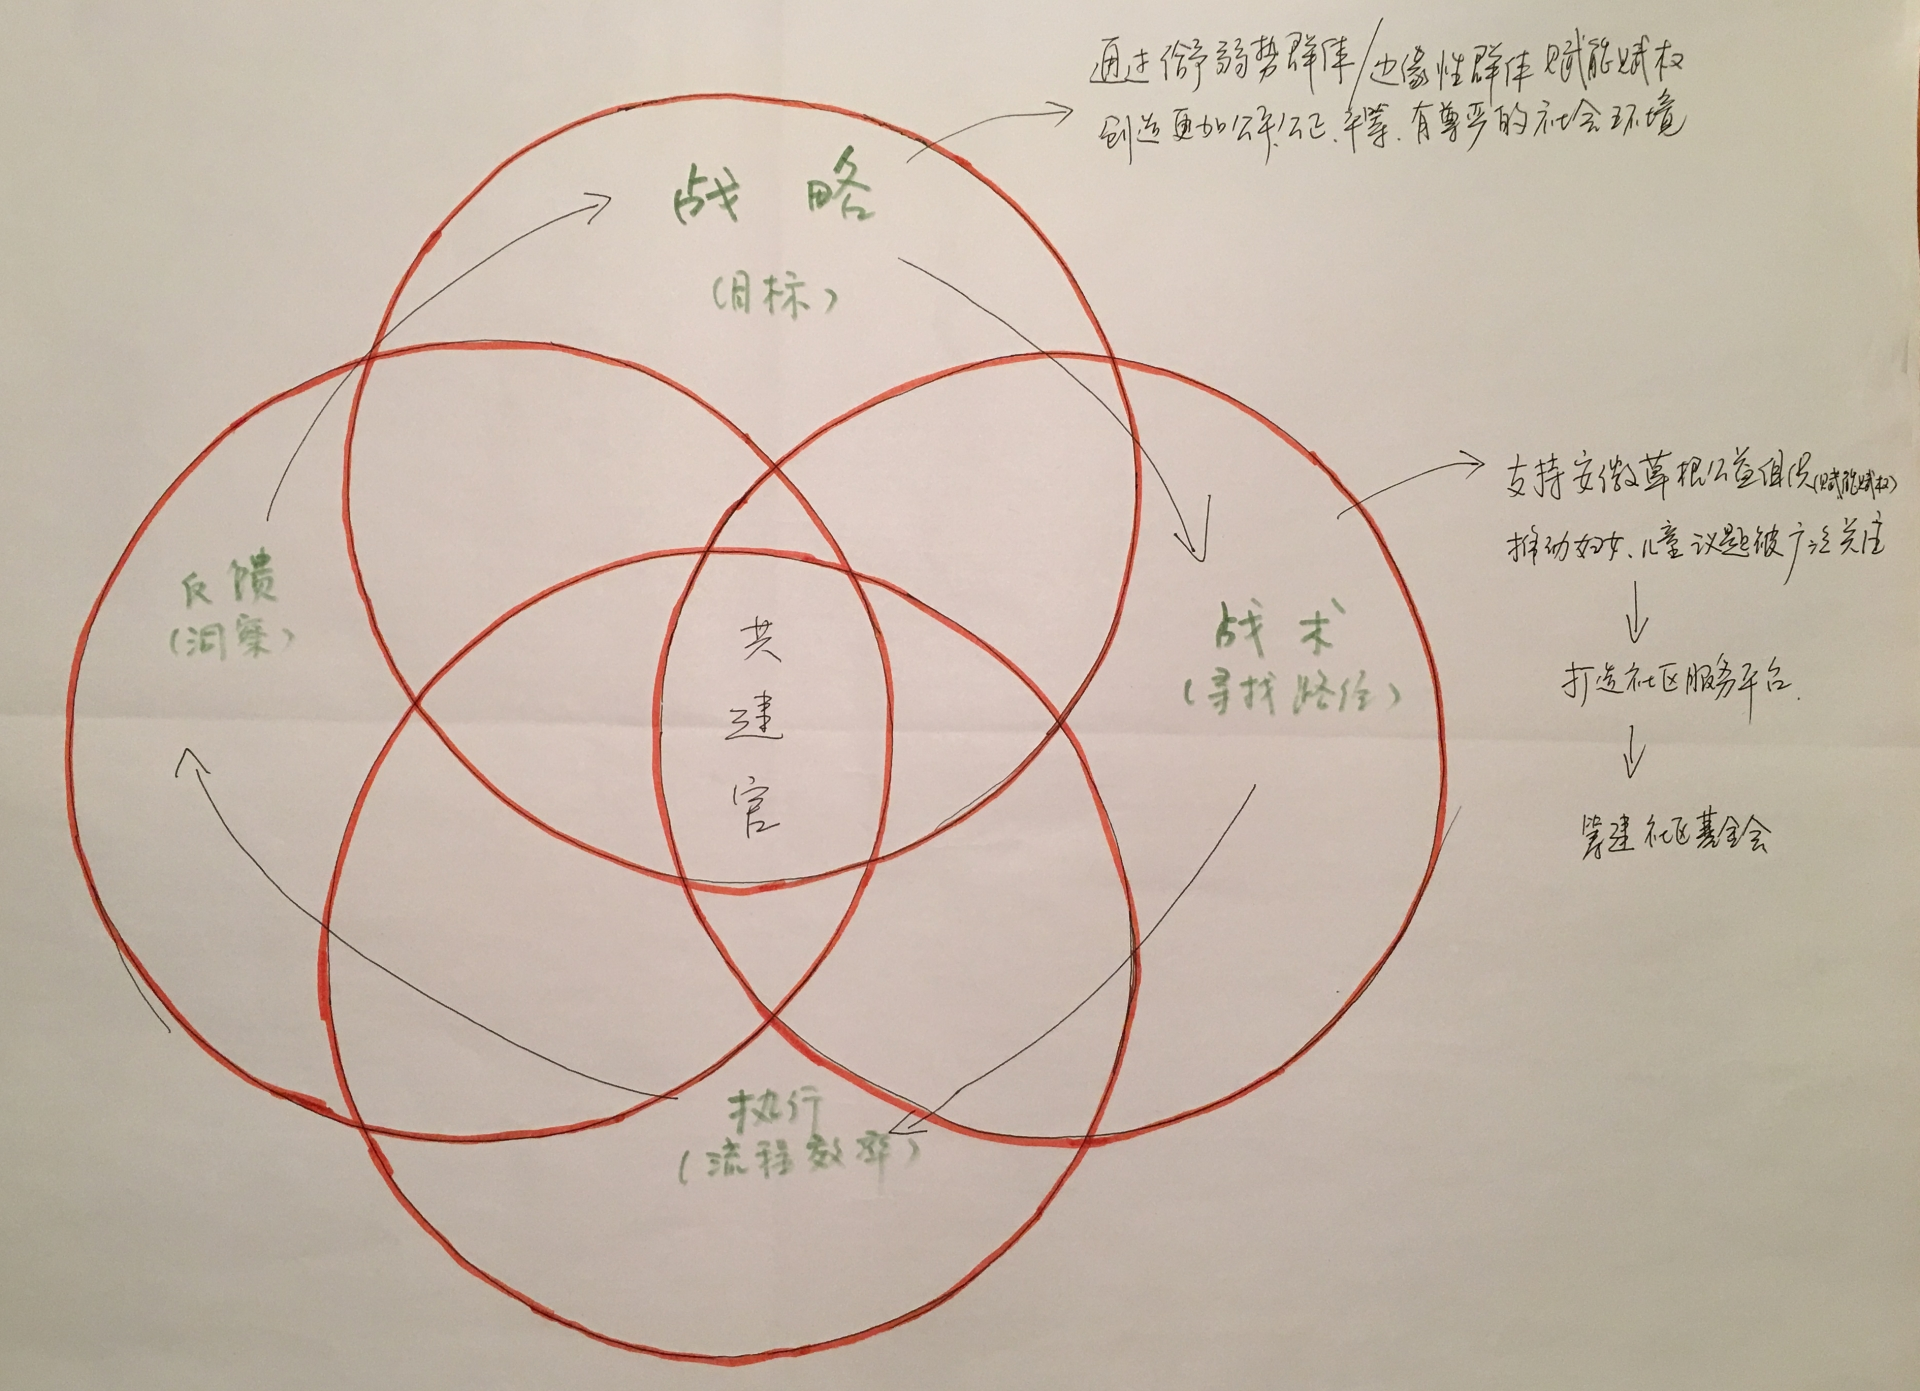 通过给予弱势群体/边缘性群体赋能赋权
创造更加公平、公正、平等、有尊严的社会环境
战略
(目标)
支持安徽草根公益组织(赋能赋权)
推动妇女、儿童议题被广泛关注
打造社区服务平台.
筹建社区基金会
反馈
(洞察)
共
建
官
战术
(寻找路径)
执行
(流程效率)